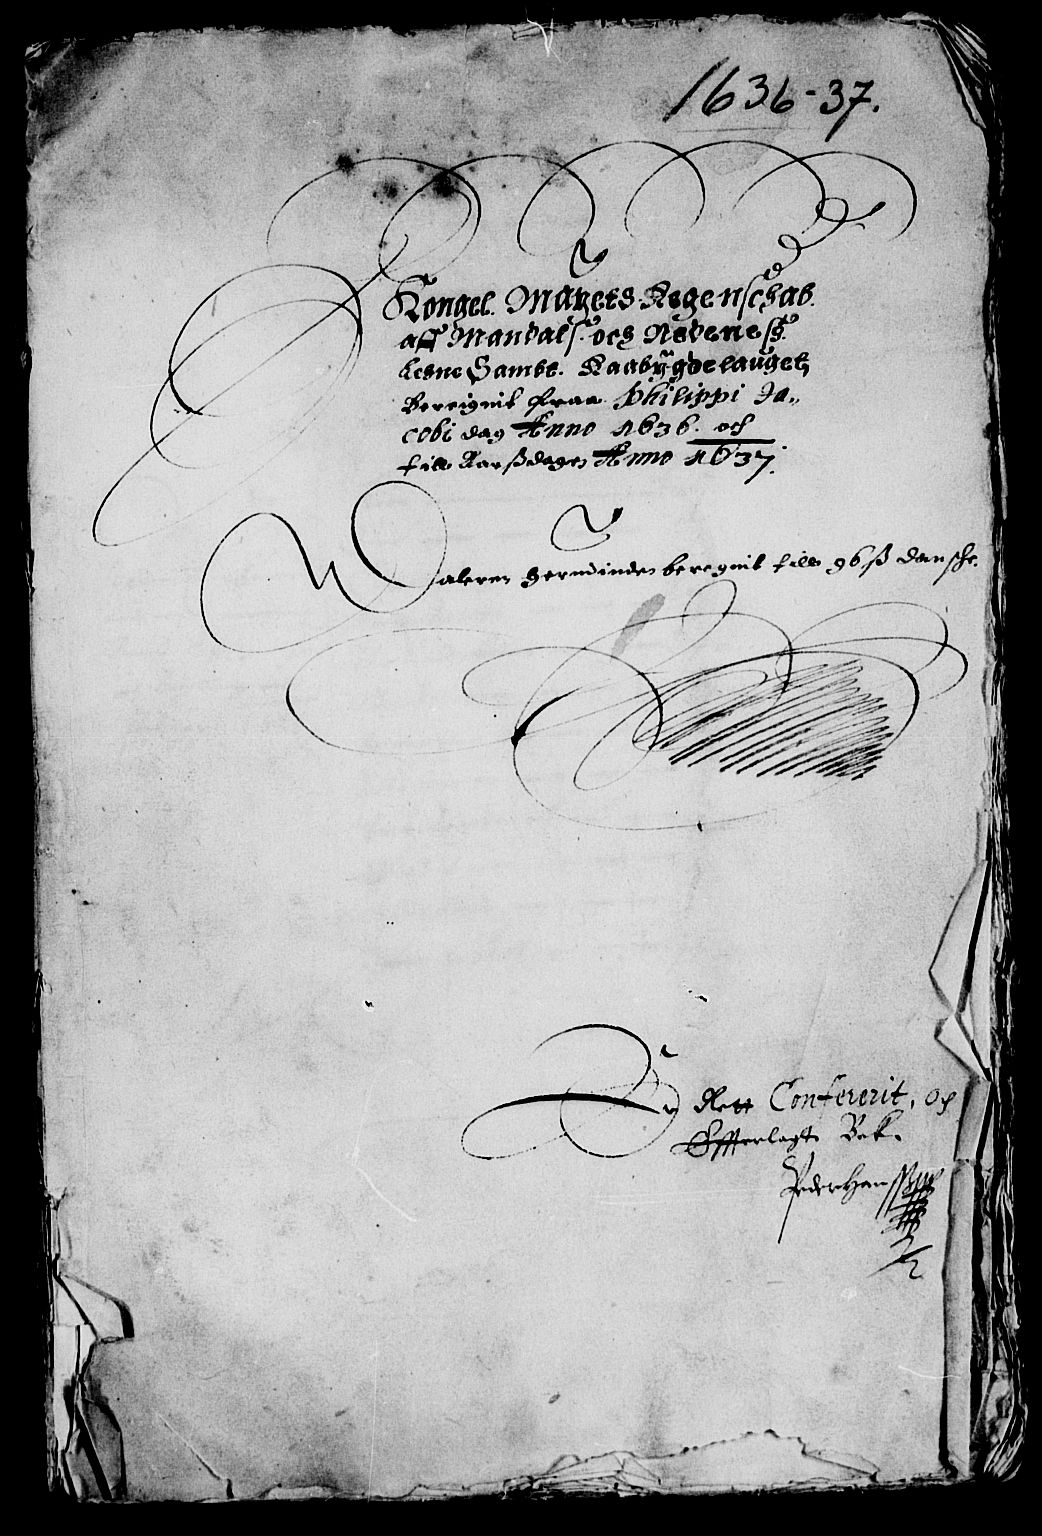 1636-37.
Kongel. Mayets Regenschab.
aff Mandals och Nedeness
Lehne Sambt. Raabygdelauget,
Beregnit fraa Philippi Ja,,
cobi dag Anno 1636. och
till Aarßdagen Anno 1637.
Daleren herindinden beregnit till 96 ß danshe.
Er Rett Confererit, og
Effterlagt Bek.
Peder Hanssen